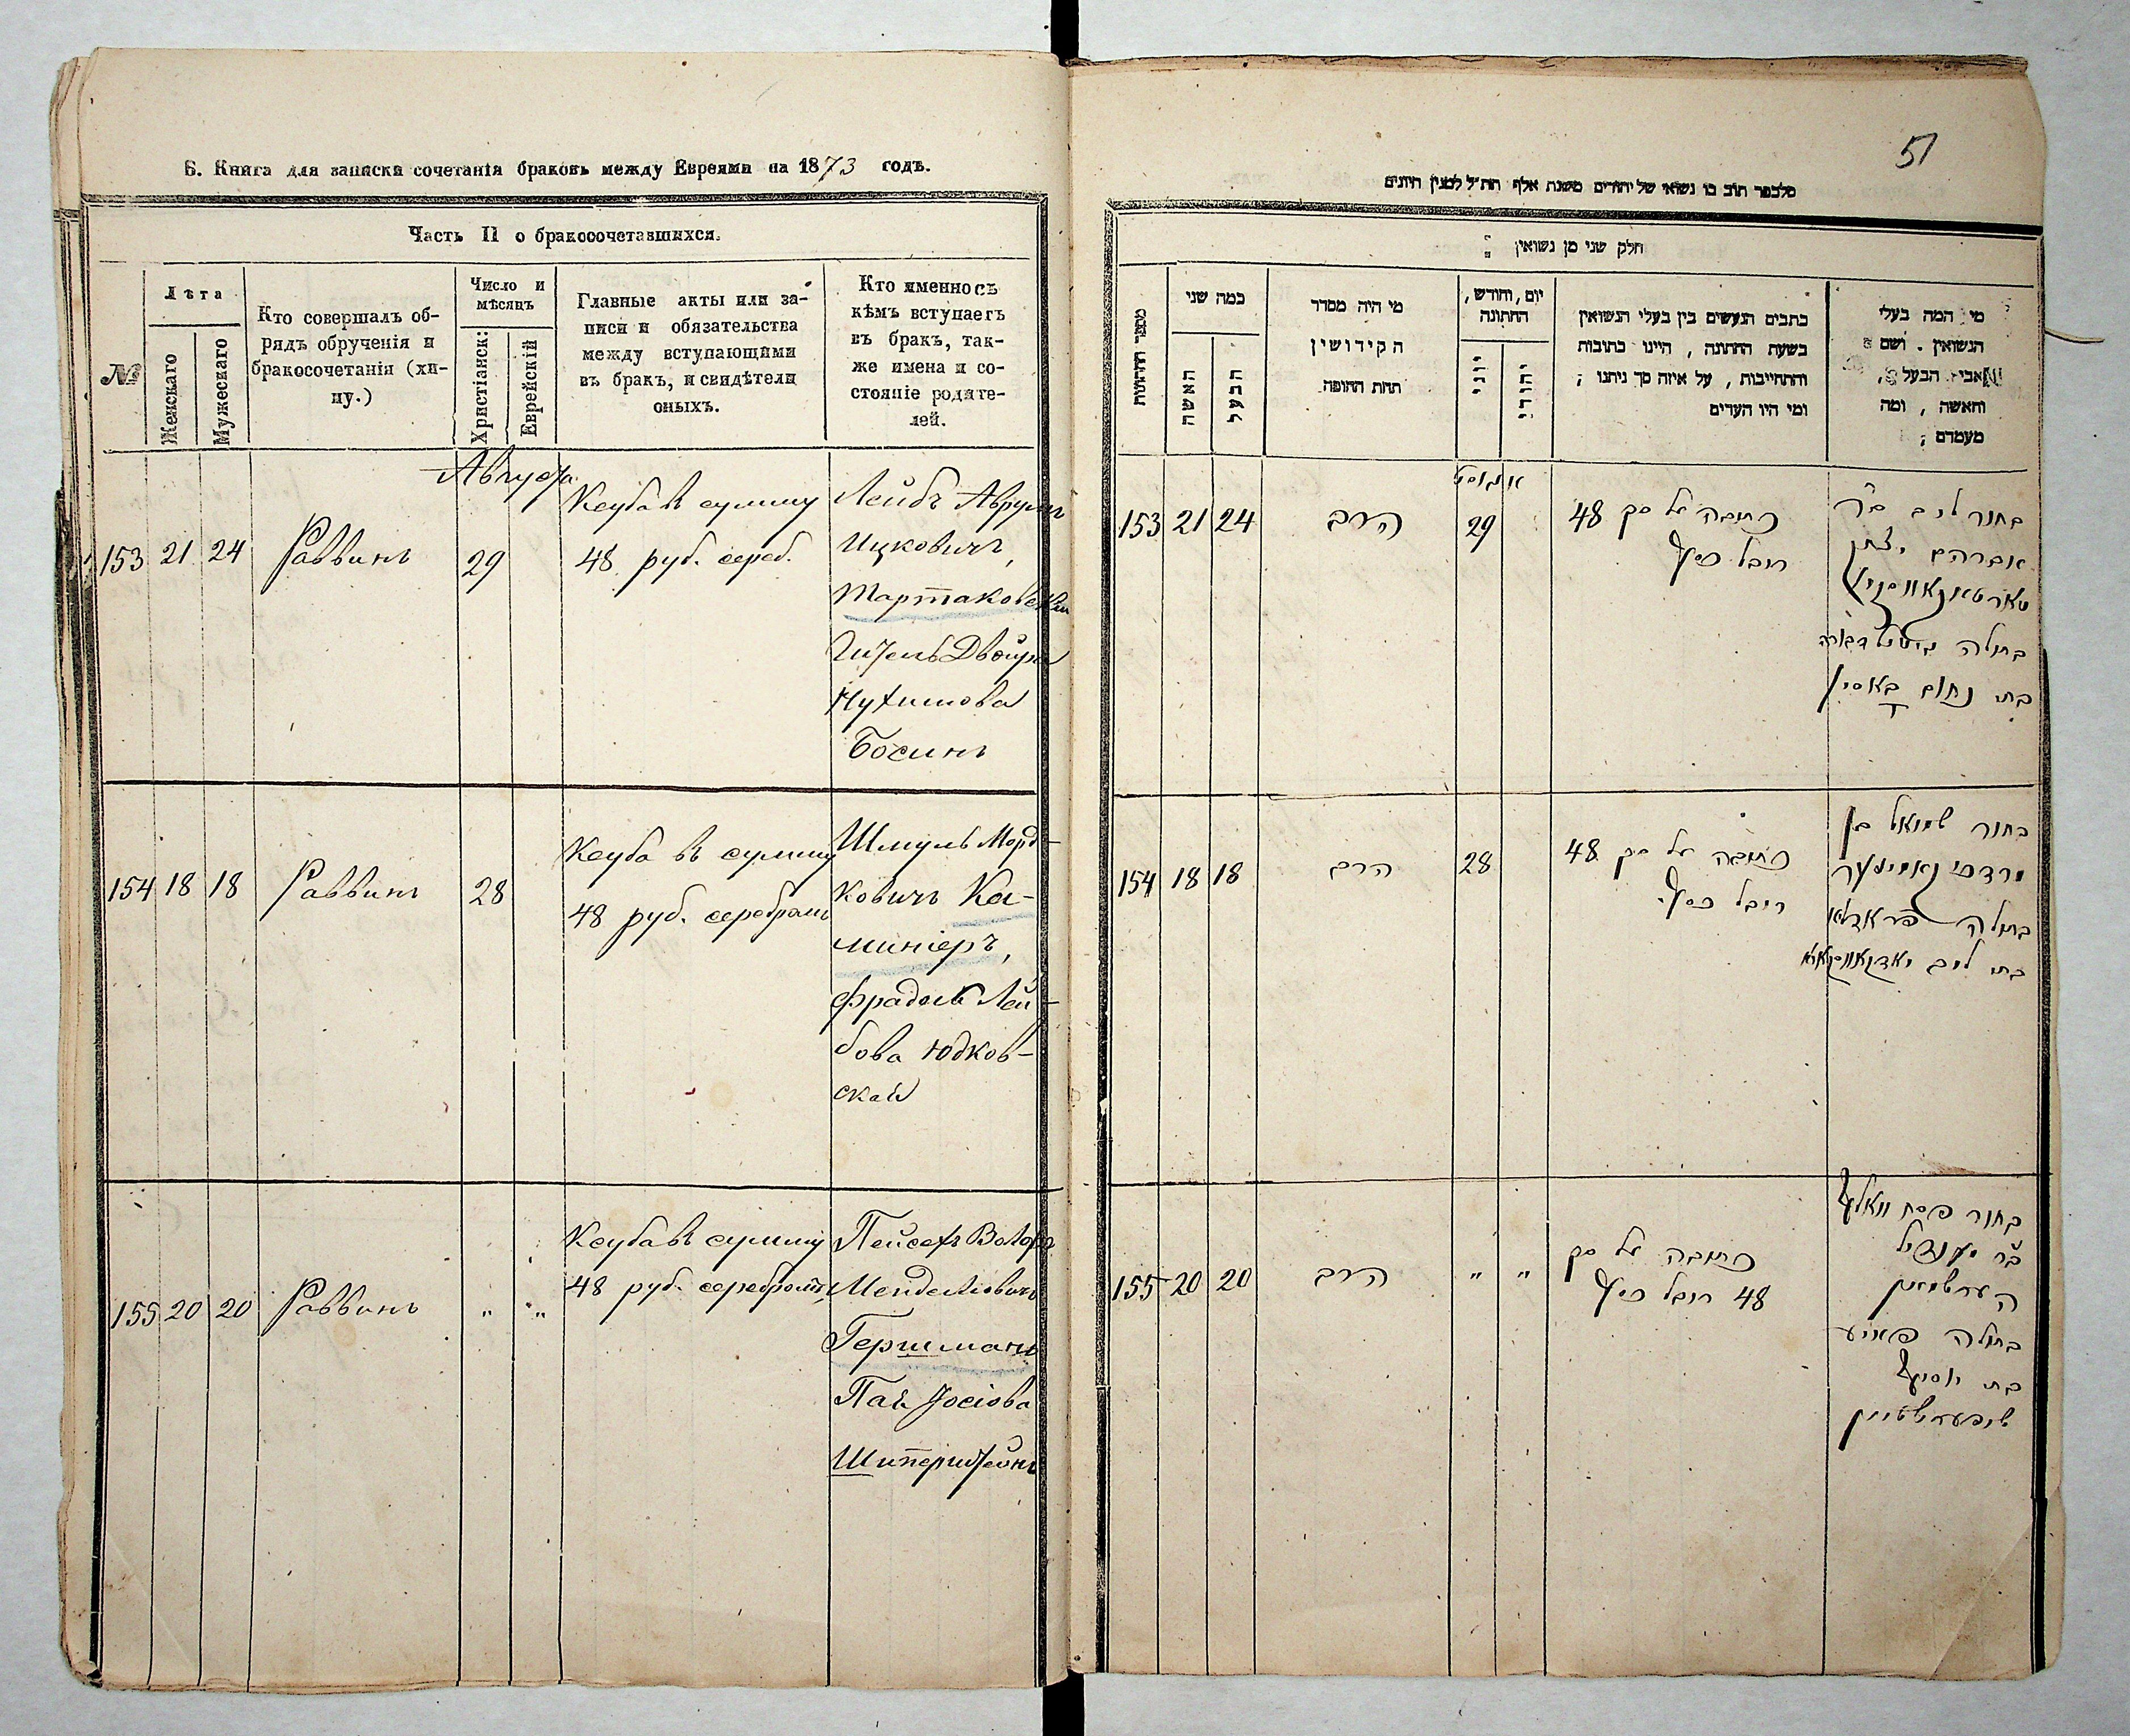 Б. Книга для записки сочетанія браковъ между Евреями на 1873 годъ.
Часть II о бракосочетавшихся.
№
Лѣта
Женскаго
Мужескаго
Кто совершалъ об-
рядъ обрученія и
бракосочетанія (хи-
пу.)
Число и
мѣсяцъ
Христіанск:
Еврейскій
Главные акты или за-
писи и обязательства
между вступающими
въ бракъ, и свидѣтели
оныхъ.
Кто именно съ
кѣмъ вступаетъ
въ бракъ, так-
же имена и со-
стояніе родите-
лей.
Августа
153 21 24 Раввинъ 29
Ксуба въ сумму
48 руб. сереб.
Лейбъ Аврумъ
Ицковичъ,
Мартаковскій
Гитель Двойра
Нухимова
Босинъ
154 18 18 Раввинъ 28
Ксуба въ сумму
48 руб. серебромъ
Шмуль Морд-
ковичъ Ка-
миніеръ,
Фрадель Лей-
бова Юдков-
ская
155 20 20 Раввинъ " "
Ксуба въ сумму
48 руб. серебромъ
Пейсехъ Волфъ
Менделіовичъ
Гершманъ
Пая Іосіова
Шиперштейнъ
51
חלק שני מן נשואין
מספר החתונות
כמה שני
האשה
הבעל
מי היה מסדר
הקידושין
תחת החופה
יום, וחודש,
החתונה
יוני
יהודי
כתבים הנעשים בין בעלי הנשואין
בשעת החתונה, היינו כתובות
והתחייבות, על איזה סך ניתנו;
ומי היו העדים
מי המה בעלי
הנשואין. ושם
אבי הבעל,
והאשה, ומה
מעמדם;
אויגוסט
153 21 24 הרב 29
כתובה על סך 48
רובל כסף
בחור ליב ב"ר
אברהם יצחק
בתולה גיטל דבורה
בת נחום באסין
154 18 18 הרב 28
כתובה על סך 48
רובל כסף
בחור שמואל בן
מרדכי קאמינער
בתולה פראדל
בת ליב יאדקאווסקאיא
155 20 20 הרב " "
כתובה על סך
48 רובל כסף
בחור פסח וואלף
ב"ר מענדיל
הערשמאן
בתולה פאיע
בת יוסף
שיפערשטיין